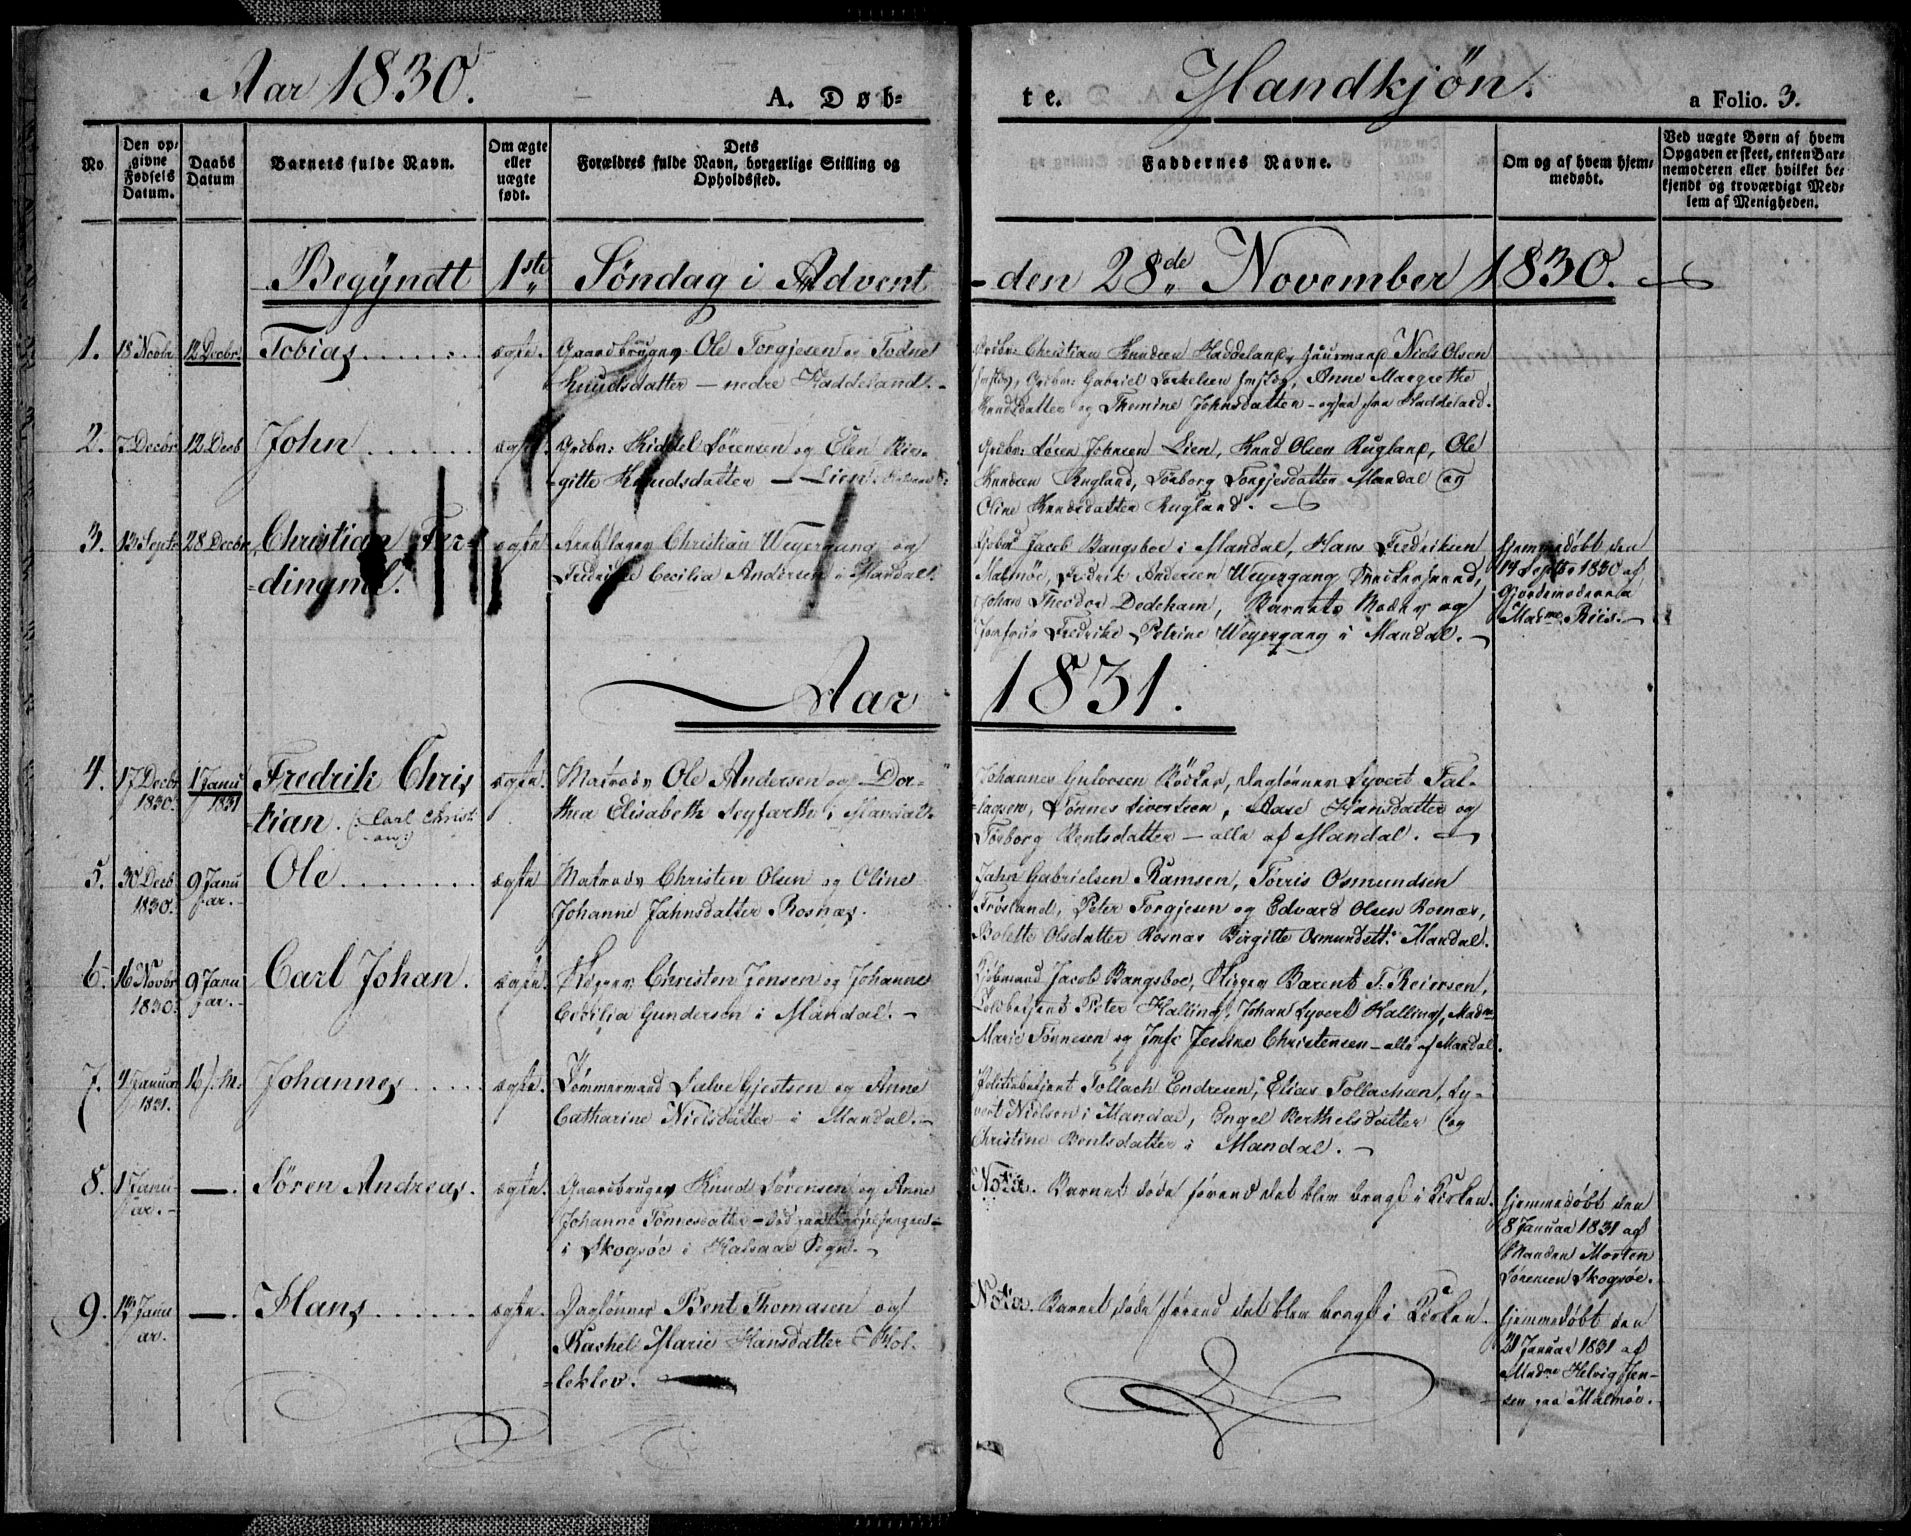 Aar 1830.
A. Døb-
te.
Handkjøn.
a Folio. 3.
No.
Den op-
givne
Fødsels
Datum.
Daabs
Datum
Barnets fulde Navn.
Om ægte
eller
uægte
født.
Dets
Forældres fulde Navn, borgerlige Stilling og
Opholdssted.
Faddernes Navne.
Om og af hvem hjem-
medøbt.
Ved uægte Børn af hvem
Opgaven er skeet, enten Bar-
nemoderen eller hvilket be-
kjendt og troværdigt Med-
lem af Menigheden.
Begyndt 1ste Søndag i Advent
den 28de November 1830.
1. 18 Novbr 12 Decbr. Tobias ægte.
Gaardbruger Ole Torgjesen og Todne
Knudsdatter - nedre Haddeland.
Grdbr: Christian Knudsen Haddeland, Niels Olsen
Grdbr: Gabriel Torkelsen Imstøv, Anne Margrethe
Knudsdatter og Themine Johnsdatter - ogsaa fra Haddeland.
2. 7 Decbr 12 Decb John ægte.
Grdbr: Kiddel Sørensen og Elen Bir-
gitte Knudsdatter - Lien.
Grdbr: Søren Johnsen Lien, Knud Olsen Rugland, Ole
Knudsen Rugland, Torborg Torgjesdatter Mandal og
Oline Knudsdatter Rugland.
3. 13 Septr 28 Decbr Christian Fer-
dinand. ægte.
Christian Weyergang og
Fredrike Cecilia Andersen i Mandal.
Jacob Bangsboe i Mandal, Hans Fredriksen
Malmøe, Fredrik Andersen Weyergang
Johan Theodor Dedeham, Barnets Moder og
Jomfrue Fredrike Petrine Weyergang i Mandal.
Hjemmedøbt den
14 Septbr 1830 af
Gjordemoderen
Madme Riis.
Aar 1831.
4. 17 Decbr
1830. 1 Janu
1831 Fredrik Chris
tian. (: Carl Christ
ian:) ægte.
Matros Ole Andersen og Dor-
thea Elisabeth Seyfarth i Mandal.
Johannes Gulovsen Bödker, Daglønner Syvert Tal-
lagsen, Tønnes Sivertsen, Aase Hansdatter og
Torborg Bentsdatter - alle af Mandal.
5. 30 Decb
1830. 9 Janu
ar. Ole ægte
Matros Christen Olsen og Oline
Johanne Jahnsdatter Rosnæs.
Jahn Gabrielsen Ramsen, Torris Osmundsen
Frøsland, Peter Torgjesen og Edvard Olsen Rosnæs,
Bolette Olsdatter Rosnæs Birgitte Osmundsdtt: Mandal.
6. 16 Novbr
1830. 9 Janu
ar. Carl Johan. ægte.
Skipper Christen Jensen og Johanne
Cecilia Gundersen i Mandal.
Kjøbmand Jacob Bangsboe, Skipper Barent T. Reiersen,
Toldbetjent Peter Halling, Johan Syvert Halling, Madme
Marie Tønnesen og Jmfr Jessine Christensen - alle af Mandal.
7. 4 Januar
1831. 16 J. M. Johannes ægte.
Tømmermand Salve Gjestsen og Anne
Catharine Nielsdatter i Mandal.
Politiebetjent Tollach Endresen, Elias Tollachsen, Sy-
vert Nielsen i Mandal, Engel Berthelsdatter og
Christine Bentsdatter i Mandal.
8. 1 Janu
ar. - Søren Andreas. ægte.
Gaardbruger Knud Sørensen og Anne
Johanne Tønnesdatter - død paa Barselsengen -
i Skogsøe i Halsaae Sogn.
Nota. Barnet døde førend det blev bragt i Kirken.
Hjemmedøbt den
8 Januar 1831 af
Manden Morten
Sørensen Skogsøe.
9. 13 Janu
ar. - Hans ægte.
Daglønner Bent Thomasen og
Rachel Marie Hansdatter Hol-
leklev.
Nota. Barnet døde førend det blev bragt i Kirken.
Hjemmedøbt den
21 Januar 1831 af
Madme Helvig Jen-
sen paa Malmøe.